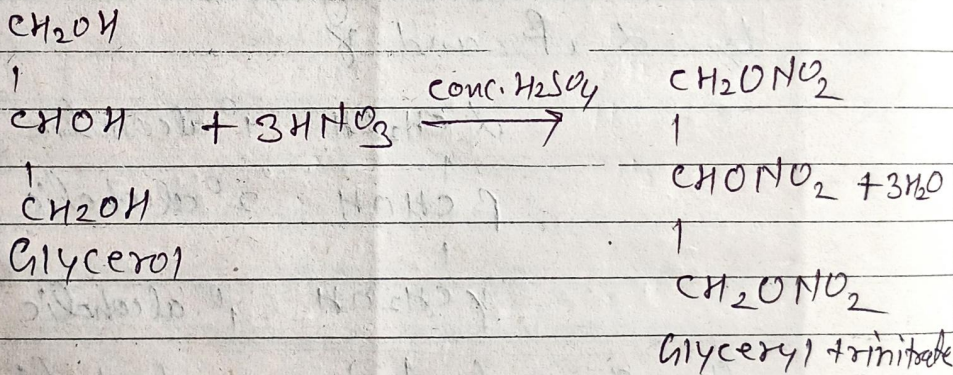 CH2OH
|
CHOH + 3HNO3 conc. H2SO4 →
|
CH2OH
Glycerol
CH2ONO2
|
CHONO2 + 3H2O
|
CH2ONO2
Glyceryl trinitrate